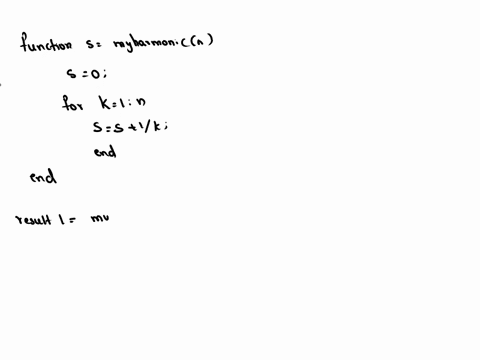 function s= myharmonic(n)
s=0;
for k=1:n
s=s+1/k;
end
end
result 1= mu